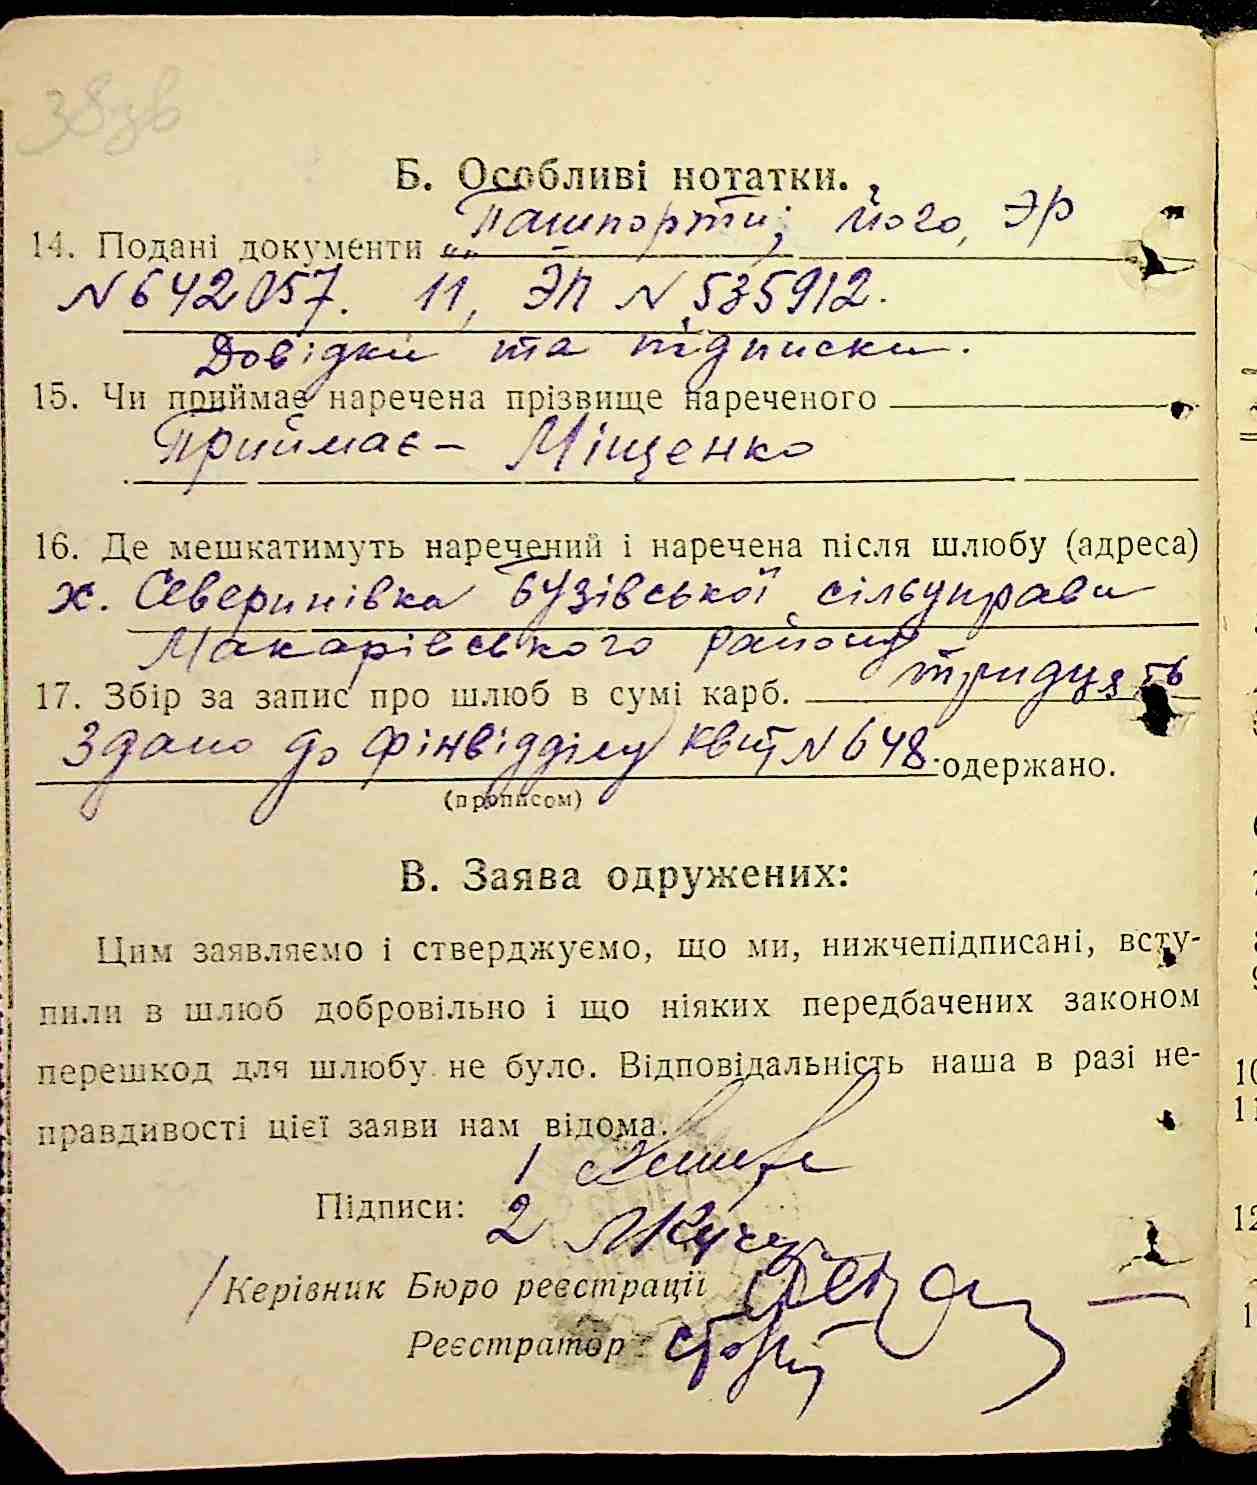 38зв
Б. Особливі нотатки.
14. Подані документи „„ Пашпорти; його, ЭР
№ 642057. 11, ЭП № 535912.
Довідки та підписки.
15. Чи приймає наречена прізвище нареченого
Приймає – Міщенко
16. Де мешкатимуть наречений і наречена після шлюбу (адреса)
х. Северинівка Бузівської сільуправи
Макарівського району
17. Збір за запис про шлюб в сумі карб. тридцять
Здано до фінвідділу квит № 648. одержано.
(прописом)
В. Заява одружених:
Цим заявляємо і стверджуємо, що ми, нижчепідписані, всту-
пили в шлюб добровільно і що ніяких передбачених законом
перешкод для шлюбу не було. Відповідальність наша в разі не-
правдивості цієї заяви нам відома.
1
Підписи:
2
/Керівник Бюро реєстрації
Реєстратор: